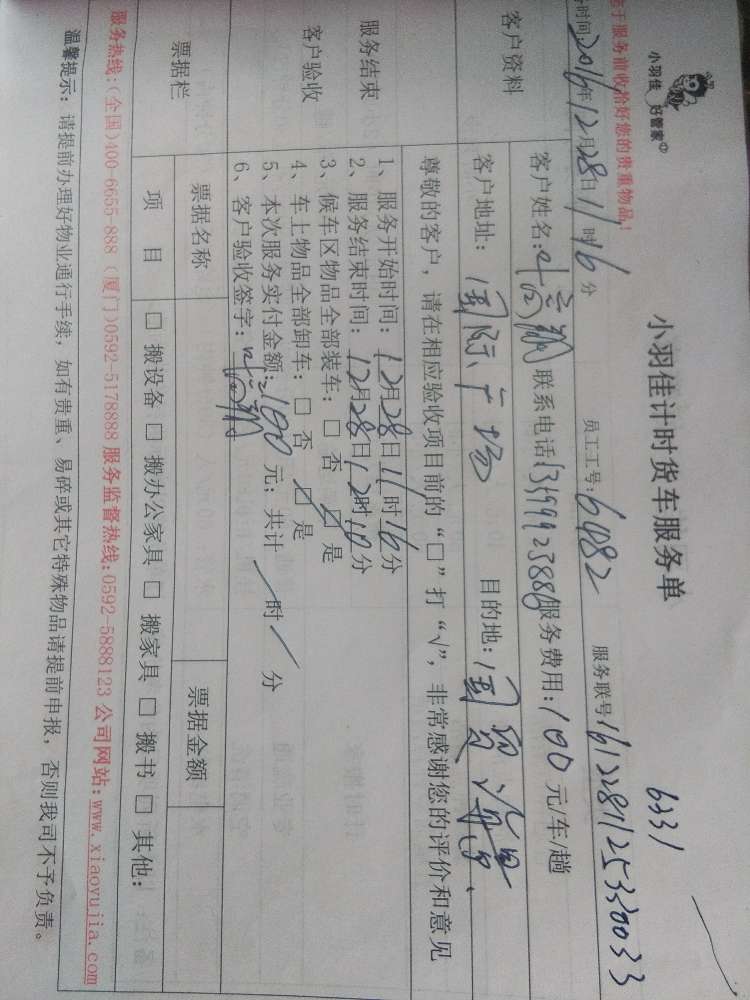 小羽佳 好管家
小羽佳计时货车服务单
6331
于服务前收拾好您的贵重物品!
时间:2016年12月28日11时16分 员工工号:6482 服务联号:161228112533003 3
客户资料
客户姓名: 联系电话 服务费用:100元/车/趟
客户地址:国际广场 目的地:国贸
服务结束
客户验收
尊敬的客户,请在相应验收项目前的“□”打“√”,非常感谢您的评价和意见
1、服务开始时间:12月28日11时16分
2、服务结束时间:12月28日12时10分
3、候车区物品全部装车:□ 否 ☑ 是
4、车上物品全部卸车:□ 否 ☑ 是
5、本次服务实付金额:100元;共计 / 时 / 分
6、客户验收签字:
票据栏
票据名称 票据金额
项 目 □ 搬设备 □ 搬办公家具 □ 搬家具 □ 搬书 □ 其他:
服务热线:(全国)400-6655-888 (厦门)0592-5178888 服务监督热线:0592-5888123 公司网站:www.xiaoyujia.com
温馨提示:请提前办理好物业通行手续,如有贵重、易碎或其它特殊物品请提前申报,否则我司不予负责。